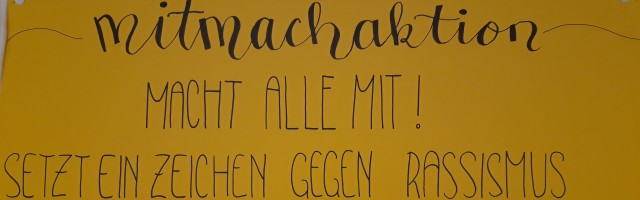 mitmachaktion
MACHT ALLE MIT!
SETZT EIN ZEICHEN GEGEN RASSISMUS